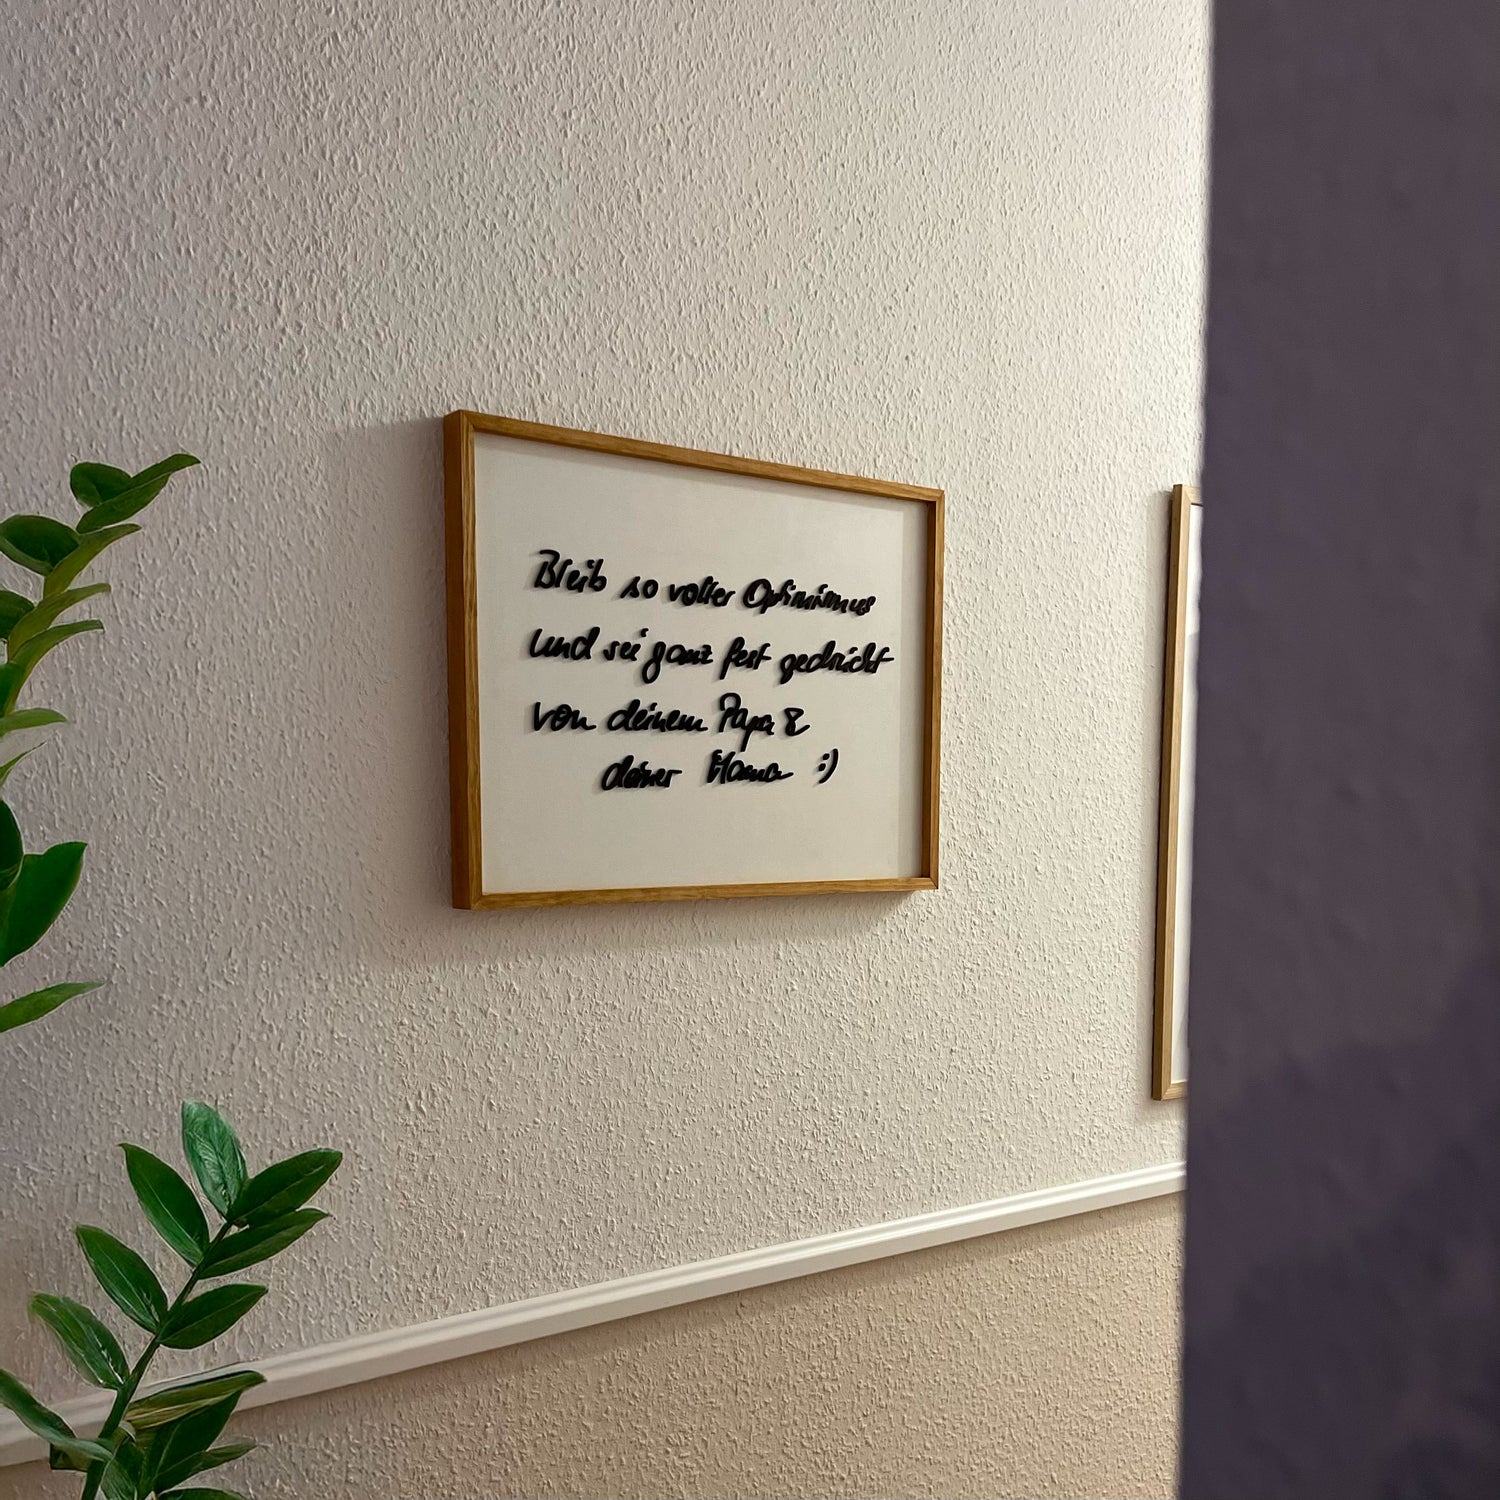 Bleib so voller Optimismus
und sei ganz fest gedrückt
von deinem Papa &
deiner Mama :)